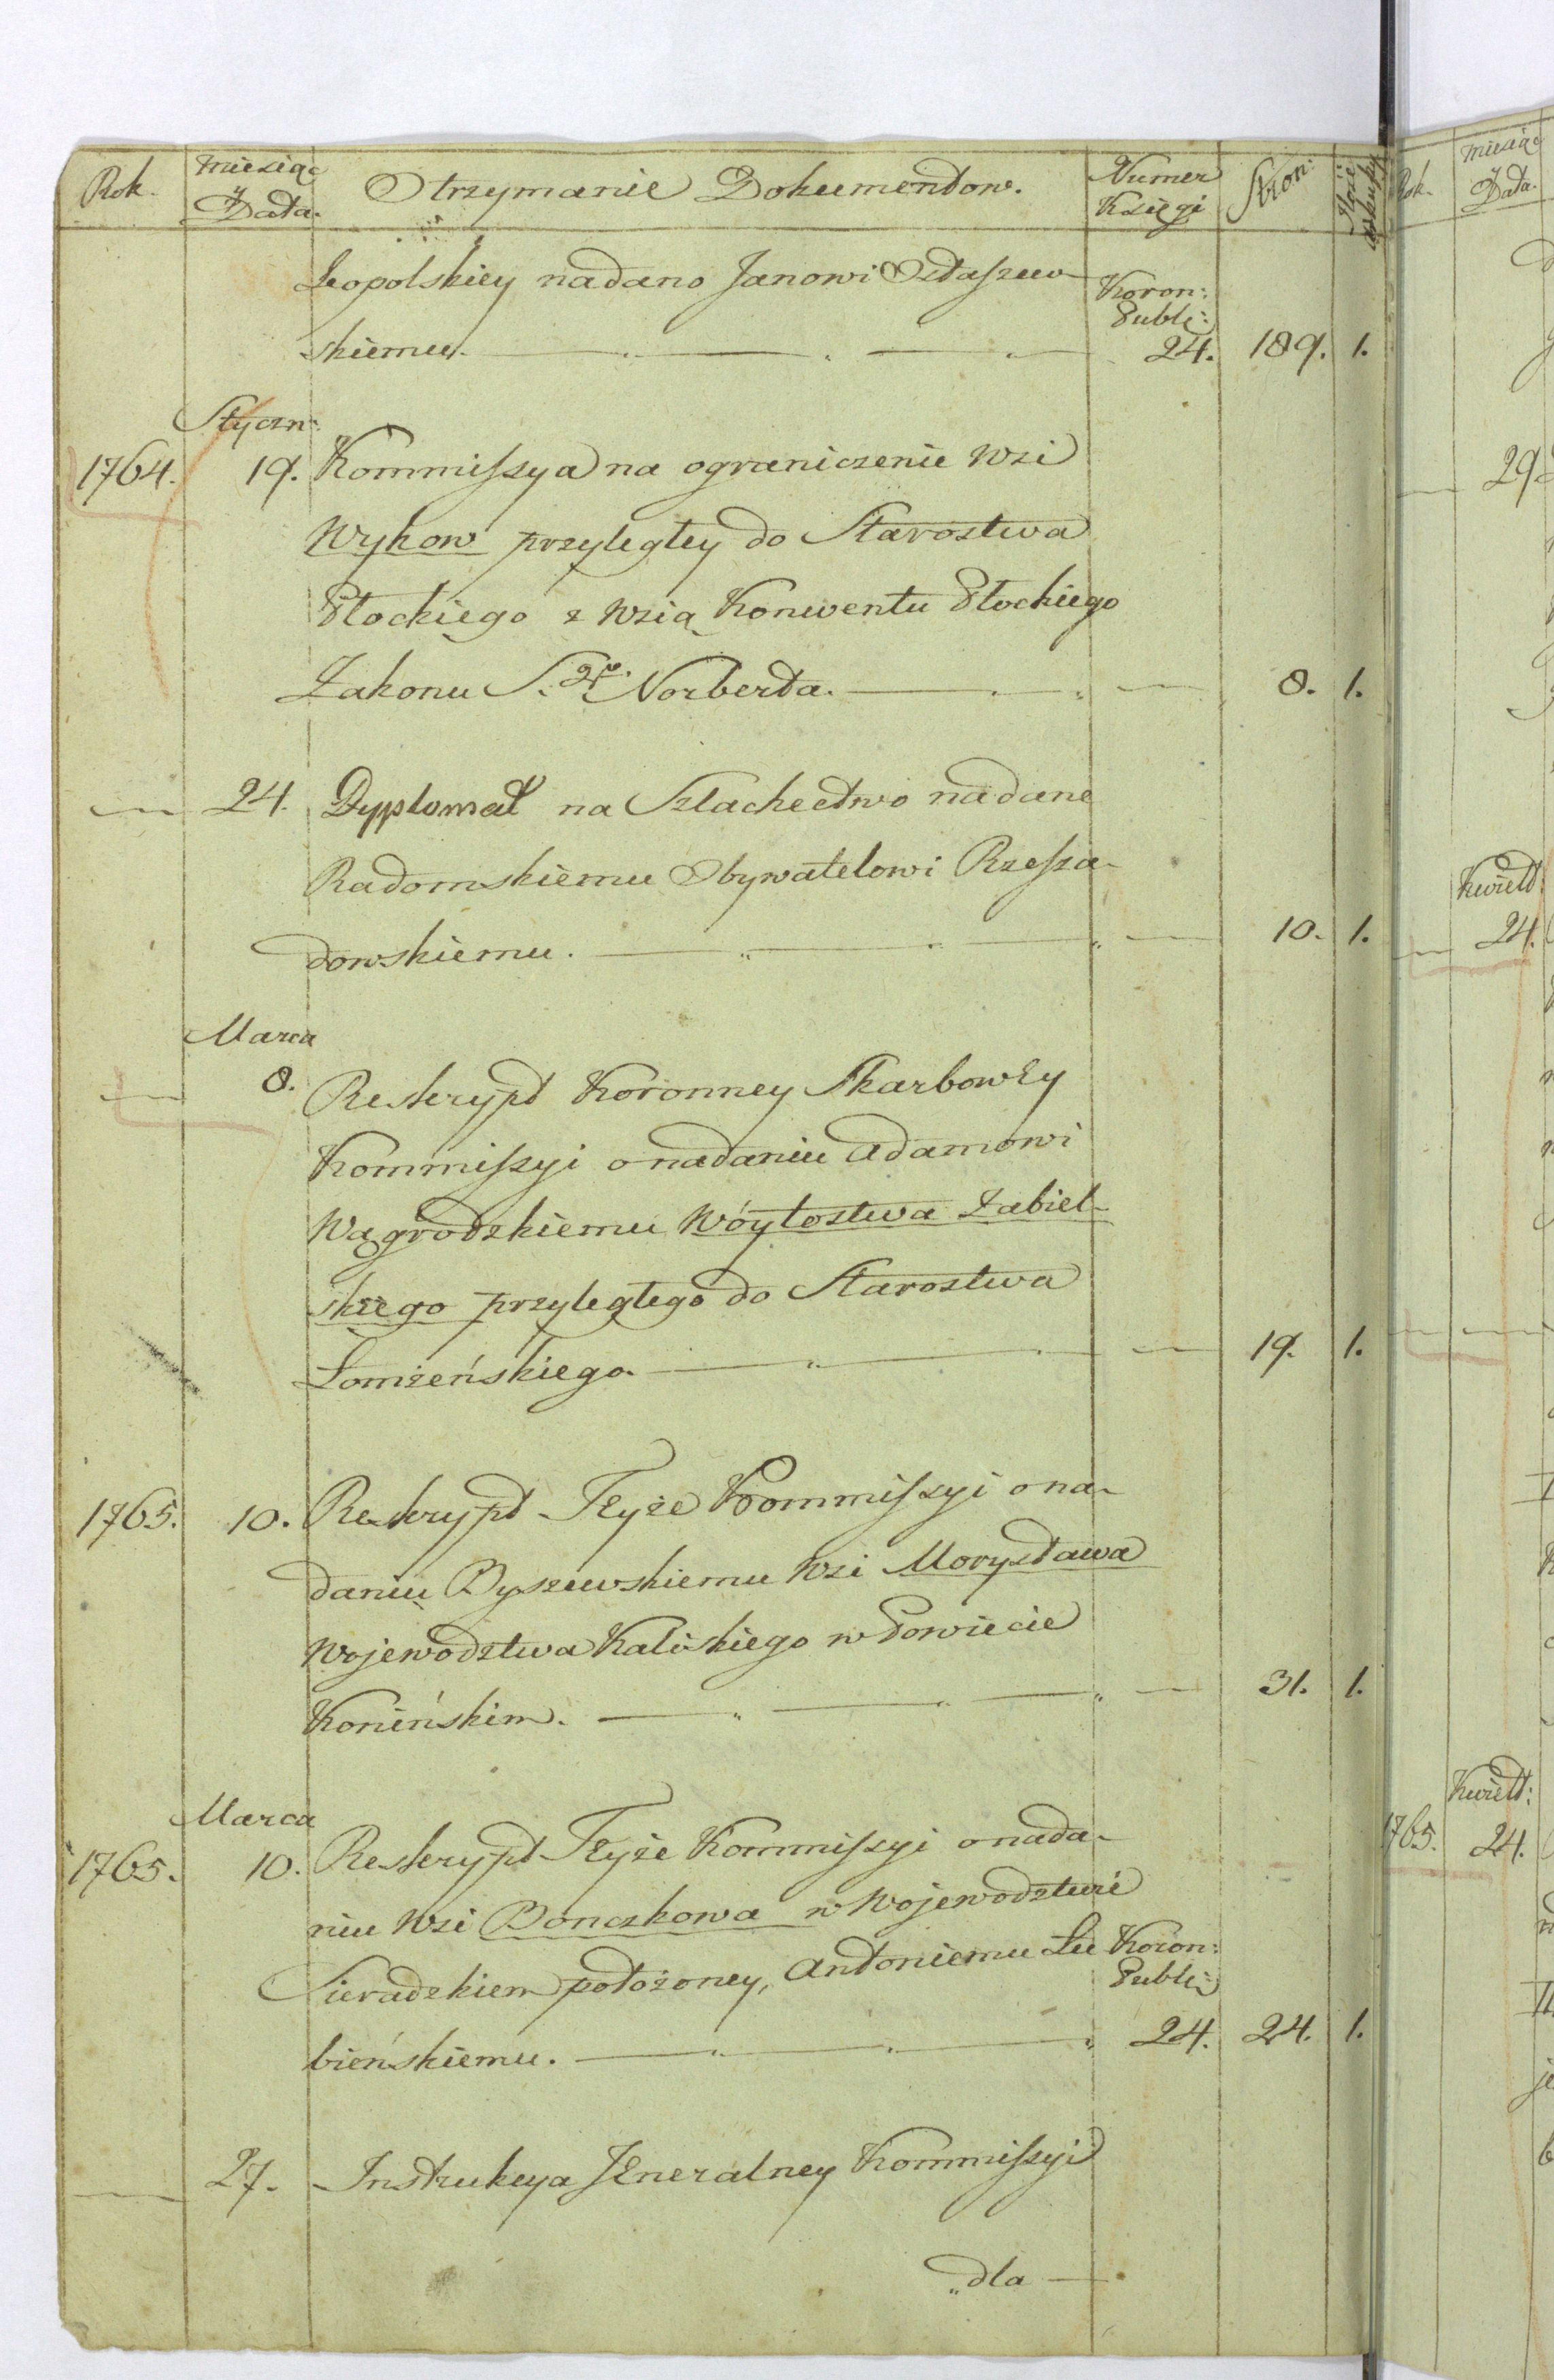 Rok. Miesiąc y Data. Otrzymanie Dokumentow. Numer Księgi Stron:
Leopolskiey nadano Janowi Ostaszew- Koron:
Publ:
skiemu. 24. 189. 1.
Styczn:
1764. 19. Kommiſsya na ograniczenie Wsi
Wykow przyległey do Starostwa
Płockiego z Wsią Konwentu Płockiego
Zakonu S.go Norberta. 8. 1.
24. Dyplomat na Szlachectwo nadane
Radomskiemu Obywatelowi Rzeſza-
dowskiemu. 10. 1.
Marca
8. Reskrypt Koronney Skarbowey
Kommiſsyi o nadaniu Adamowi
Wągrodzkiemu Wóytostwa Zabiel-
skiego przyległego do Starostwa
Łomżeńskiego. 19. 1.
1765. 10. Reskrypt Teyże Kommiſsyi o na-
daniu Byszewskiemu Wsi Morysława
Wojewodztwa Kaliskiego w Powiecie
Konińskim. 31. 1.
Marca
1765. 10. Reskrypt Teyże Kommiſsyi o nada-
niu Wsi Bonczkowa w Wojewodztwie
Sieradzkiem położoney, Antoniemu Łu Koron:
Publ:
bieńskiemu. 24. 24. 1.
27. Instrukcya Jeneralney Kommiſsyi
dla
Rok. Miesiąc y Data.
29.
Kwiet:
24.
Kwiet:
1765. 24.